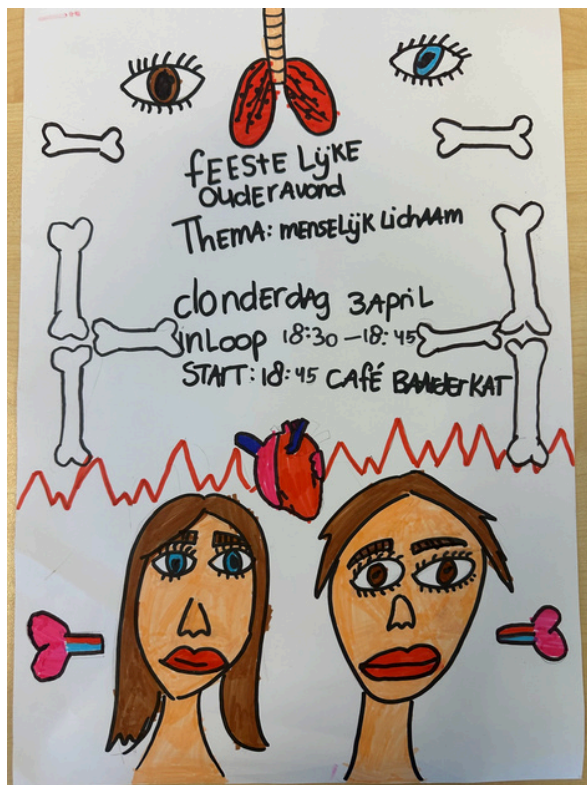 fEESTELijKE
OuderAvond
ThemA: mENSELijK LichAAm
donderdag 3 ApriL
inLoop 18:30 – 18:45
START: 18:45 CAfé BAnderKAT